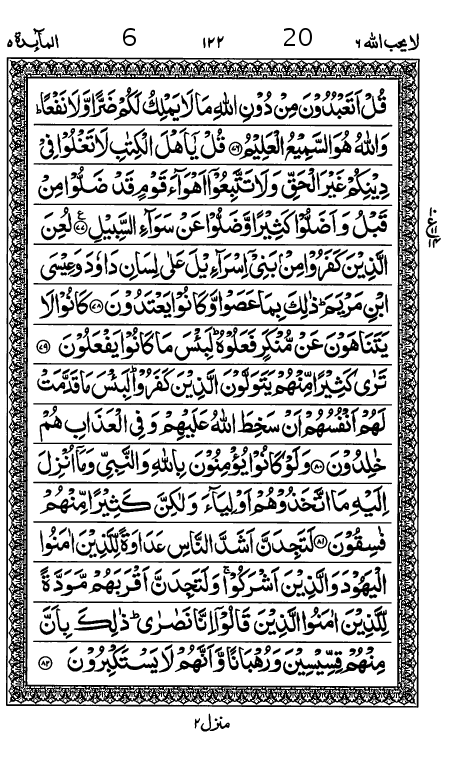 لا یحب الله ٦ 20 ١٢٢ 6 المآئدة ٥
قُلۡ اَتَعۡبُدُوۡنَ مِنۡ دُوۡنِ اللّٰهِ مَا لَا يَمۡلِكُ لَـكُمۡ ضَرًّا وَّلَا نَفۡعًا‌ؕ
وَاللّٰهُ هُوَ السَّمِيۡعُ الۡعَلِيۡمُ ﴿۷۶﴾ قُلۡ يٰۤـاَهۡلَ الۡـكِتٰبِ لَا تَغۡلُوۡا فِىۡ
دِيۡـنِكُمۡ غَيۡرَ الۡحَـقِّ وَلَا تَتَّبِعُوۡۤا اَهۡوَآءَ قَوۡمٍ قَدۡ ضَلُّوۡا مِنۡ
قَبۡلُ وَاَضَلُّوۡا كَثِيۡرًا وَّضَلُّوۡا عَنۡ سَوَآءِ السَّبِيۡلِ ﴿۷۷﴾ لُعِنَ
الَّذِيۡنَ كَفَرُوۡا مِنۡۢ بَنِىۡۤ اِسۡرَآءِيۡلَ عَلٰى لِسَانِ دَاوٗدَ وَعِيۡسَى
ابۡنِ مَرۡيَمَ‌ؕ ذٰلِكَ بِمَا عَصَوْا وَّكَانُوۡا يَعۡتَدُوۡنَ ﴿۷۸﴾ كَانُوۡا لَا
يَتَـنَاهَوۡنَ عَنۡ مُّنۡكَرٍ فَعَلُوۡهُ‌ؕ لَبِئۡسَ مَا كَانُوۡا يَفۡعَلُوۡنَ ﴿۷۹﴾
تَرٰى كَثِيۡرًا مِّنۡهُمۡ يَتَوَلَّوۡنَ الَّذِيۡنَ كَفَرُوۡا‌ؕ لَبِئۡسَ مَا قَدَّمَتۡ
لَهُمۡ اَنۡفُسُهُمۡ اَنۡ سَخِطَ اللّٰهُ عَلَيۡهِمۡ وَفِى الۡعَذَابِ هُمۡ
خٰلِدُوۡنَ ﴿۸۰﴾ وَلَوۡ كَانُوۡا يُؤۡمِنُوۡنَ بِاللّٰهِ وَالنَّبِىِّ وَمَاۤ اُنۡزِلَ
اِلَيۡهِ مَا اتَّخَذُوۡهُمۡ اَوۡلِيَآءَ وَلٰـكِنَّ كَثِيۡرًا مِّنۡهُمۡ
فٰسِقُوۡنَ ﴿۸۱﴾ لَـتَجِدَنَّ اَشَدَّ النَّاسِ عَدَاوَةً لِّـلَّذِيۡنَ اٰمَنُوا
الۡيَهُوۡدَ وَالَّذِيۡنَ اَشۡرَكُوۡا‌ۚ وَلَـتَجِدَنَّ اَ قۡرَبَهُمۡ مَّوَدَّةً
لِّـلَّذِيۡنَ اٰمَنُوا الَّذِيۡنَ قَالُوۡۤا اِنَّا نَصٰرٰى‌ؕ ذٰ لِكَ بِاَنَّ
مِنۡهُمۡ قِسِّيۡسِيۡنَ وَرُهۡبَانًا وَّاَنَّهُمۡ لَا يَسۡتَكۡبِرُوۡنَ ﴿۸۲﴾
منزل ۲